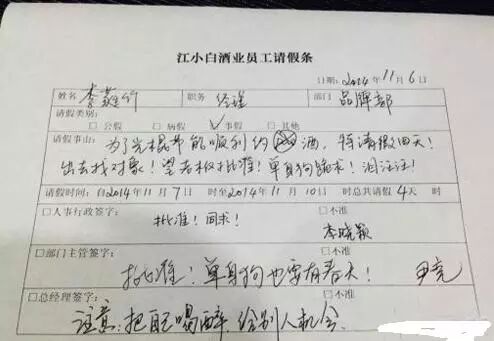 江小白酒业员工请假条
日期：2014年11月6日
姓名 李 竹 职务 经理 部门 品牌部
请假类别：
□公假 □病假 ☑事假 □其他
请假事由：为了光棍节能顺利约酒，特请假四天！
出去找对象！望老板批准！单身狗跪求！泪汪汪！
请假时间：自2014年11月7日 时至2014年11月10日 时总共请假4天 时
□人事行政签字： □不准
批准！同求！ 李晓颖
□部门主管签字： □不准
批准！单身狗也要有春天！ 尹亮
□总经理签字： □不准
注意：把自己喝醉，给别人机会。